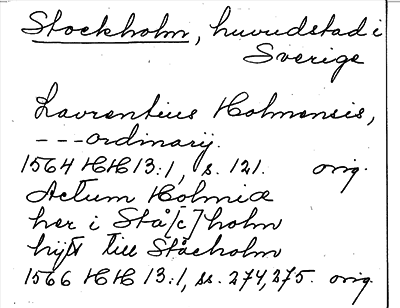 Stockholm, huvudstad i
Sverige
Laurentius Holmensis,
---ordinarij.
1564 HH 13:1, s. 121. orig.
Actum Holmiæ
her i Stå[c]holm
hijtt till Ståcholm
1566 HH 13:1, ss. 274, 275. orig.